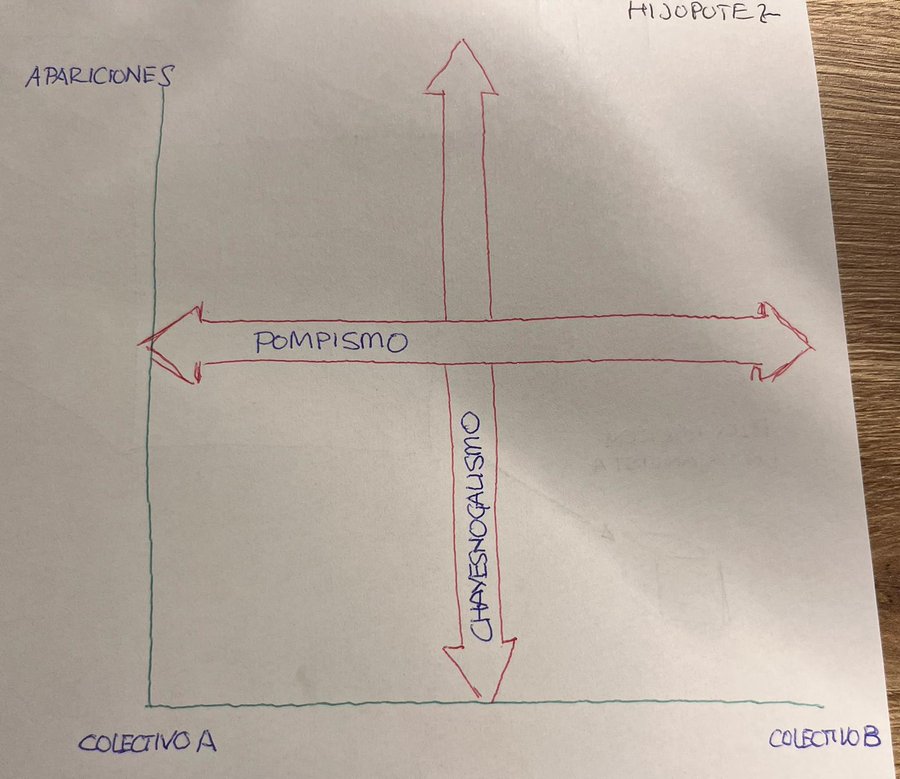 HIJOPUTEZ
APARICIONES
POMPISMO
CHAVESNOGALISMO
COLECTIVO A
COLECTIVO B